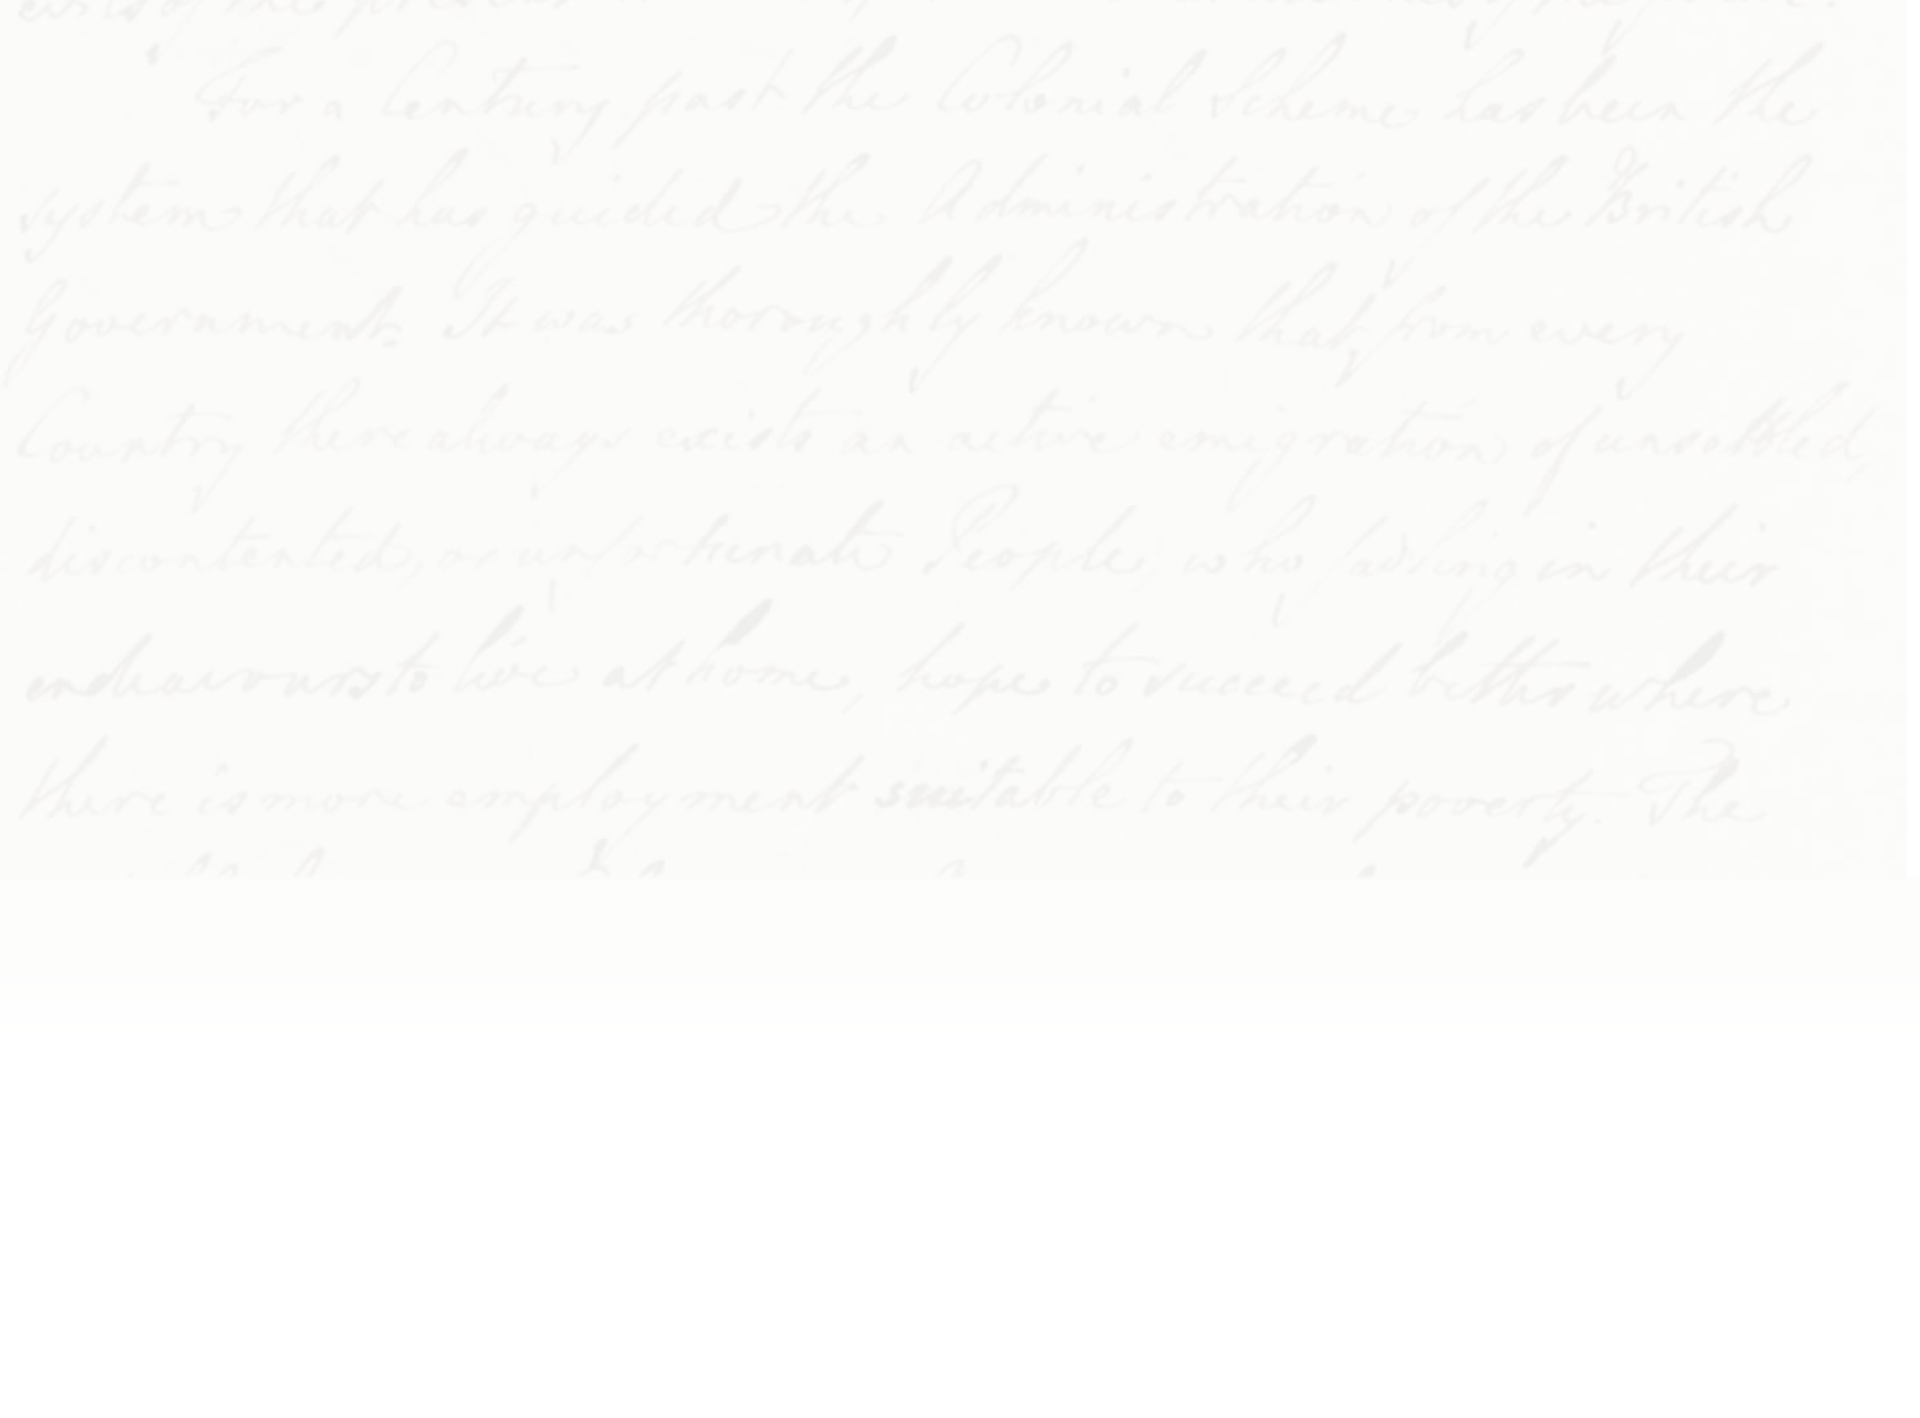 For a Century past the Colonial Scheme has been the
system that has guided the Administration of the British
Government. It was thoroughly known that from every
Country there always exists an active emigration of unsettled,
discontented, or unfortunate People, who failing in their
endeavours to live at home, hope to succeed better where
there is more employment suitable to their poverty. The